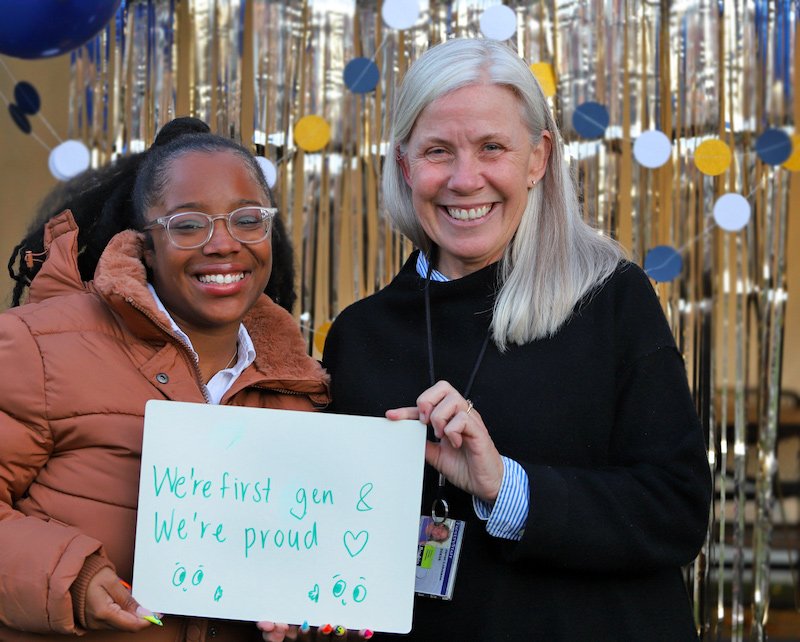 We're first gen &
We're proud ♡